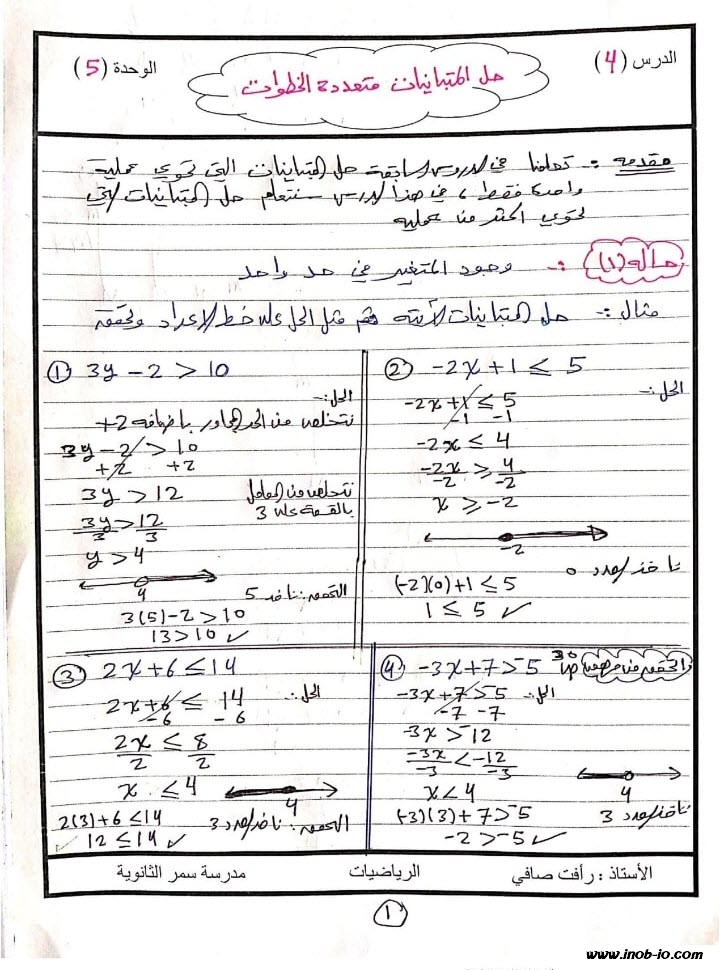 الدرس (4)
حل المتباينات متعددة الخطوات
الوحدة (5)
مقدمه :- تعلمنا في الدروس السابقة حل المتباينات التي تحوي عملية
واحدة فقط ، في هذا الدرس سنتعلم حل المتباينات التي
تحوي اكثر من عمليه
حاله (1) :- وجود المتغير في حد واحد
مثال :- حل المتباينات الآتيه ثم مثل الحل على خط الاعداد وتحققه
① 3y - 2 > 10
الحل :-
نتخلص من الحد المجاور باضافه +2
3y - 2 > 10
+2 +2
3y > 12
نتخلص من المعامل
بالقسمة على 3
3y/3 > 12/3
y > 4
4
التحقق : نأخذ 5
3(5) - 2 > 10
13 > 10 ✓
② -2x + 1 ≤ 5
الحل :-
-2x + 1 ≤ 5
-1 -1
-2x ≤ 4
-2x/-2 ≥ 4/-2
x ≥ -2
-2
نأخذ العدد 0
(-2)(0) + 1 ≤ 5
1 ≤ 5 ✓
③ 2x + 6 ≤ 14
الحل :-
2x + 6 ≤ 14
-6 -6
2x/2 ≤ 8/2
x ≤ 4
4
التحقق : نأخذ العدد 3
2(3) + 6 ≤ 14
12 ≤ 14 ✓
④ -3x + 7 > -5
الحل :-
-3x + 7 > -5
-7 -7
-3x > -12
-3x/-3 < -12/-3
x < 4
4
نأخذ العدد 3
(-3)(3) + 7 > -5
-2 > -5 ✓
الأستاذ : رأفت صافي
الرياضيات
مدرسة سمر الثانوية
1
www.inob-io.com